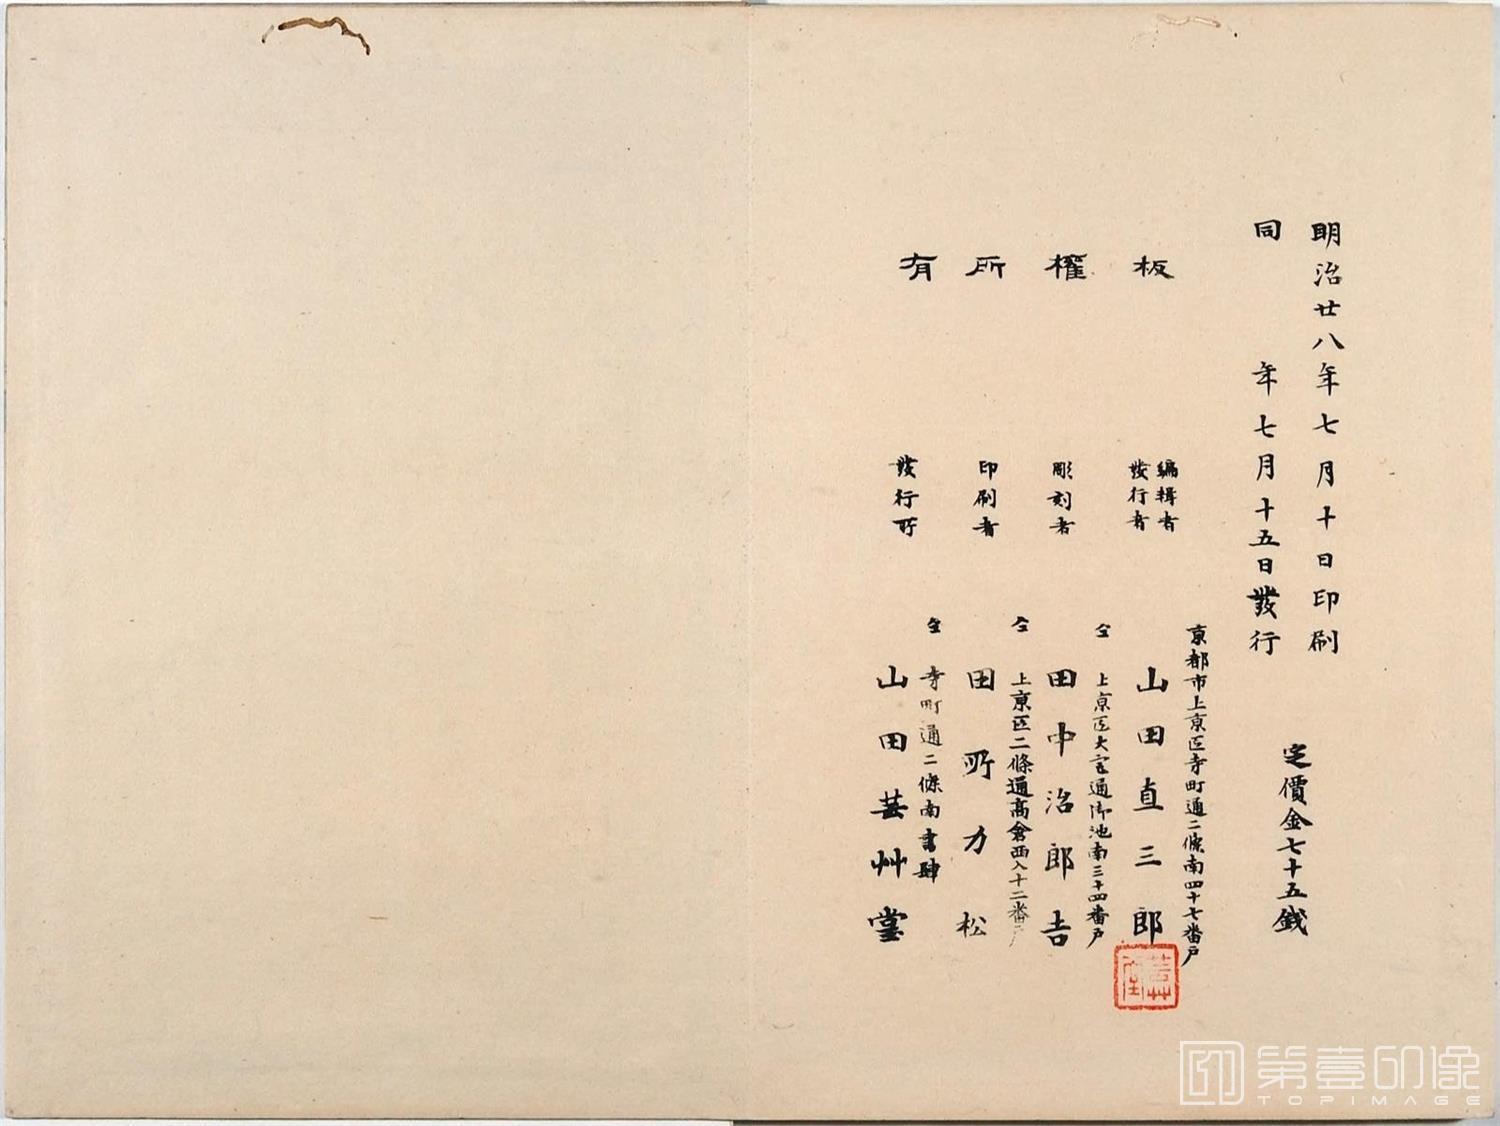 明治廿八年七月十日印刷
同年七月十五日發行
定價金七十五錢
板權所有
京都市上京區寺町通二條南四十七番戸
編輯者
發行者
山田直三郎
仝上京區大宮通御池南三十四番戸
彫刻者
田中治郎吉
仝上京區二條通高倉西入十二番戸
印刷者
田所力松
仝寺町通二條南書肆
發行所
山田芸艸堂
第壹印像
TOPIMAGE